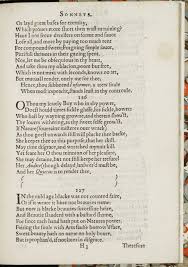 SONNETS.
Or layd great bases for eternity,
Which proues more short then wast or ruining?
Haue I not seene dwellers on forme and fauor
Lose all, and more by paying too much rent
For compound sweet; Forgoing simple fauor,
Pittifull thriuors in their gazing spent.
Noe, let me be obsequious in thy heart,
And take thou my oblacion, poore but free,
Which is not mixt with seconds, knows no art,
But mutuall render, onely me for thee.
Hence, thou subbornd Informer, a trew soule
When most impeacht, stands least in thy controule.
126
O Thou my louely Boy who in thy power,
Doest hould times fickle glasse, his sickle, hower:
Who hast by wayning growne, and therein shou'st,
Thy louers withering, as thy sweet selfe grow'st.
If Nature (soueraine misteres ouer wrack)
As thou goest onwards still will plucke thee backe,
She keepes thee to this purpose, that her skill.
May time disgrace, and wretched mynuit kill.
Yet feare her O thou minnion of her pleasure,
She may detaine, but not still keepe her tresure!
Her Audite (though delayd) answer'd must be,
And her Quietus is to render thee.
( )
( )
127
IN the ould age blacke was not counted faire,
Or if it weare it bore not beauties name:
But now is blacke beauties successiue heire,
And Beautie slanderd with a bastard shame,
For since each hand hath put on Natures power,
Fairing the foule with Arts faulse borrow'd face,
Sweet beauty hath no name no holy boure,
But is prophan'd, if not liues in disgrace.
H 3
Therefore